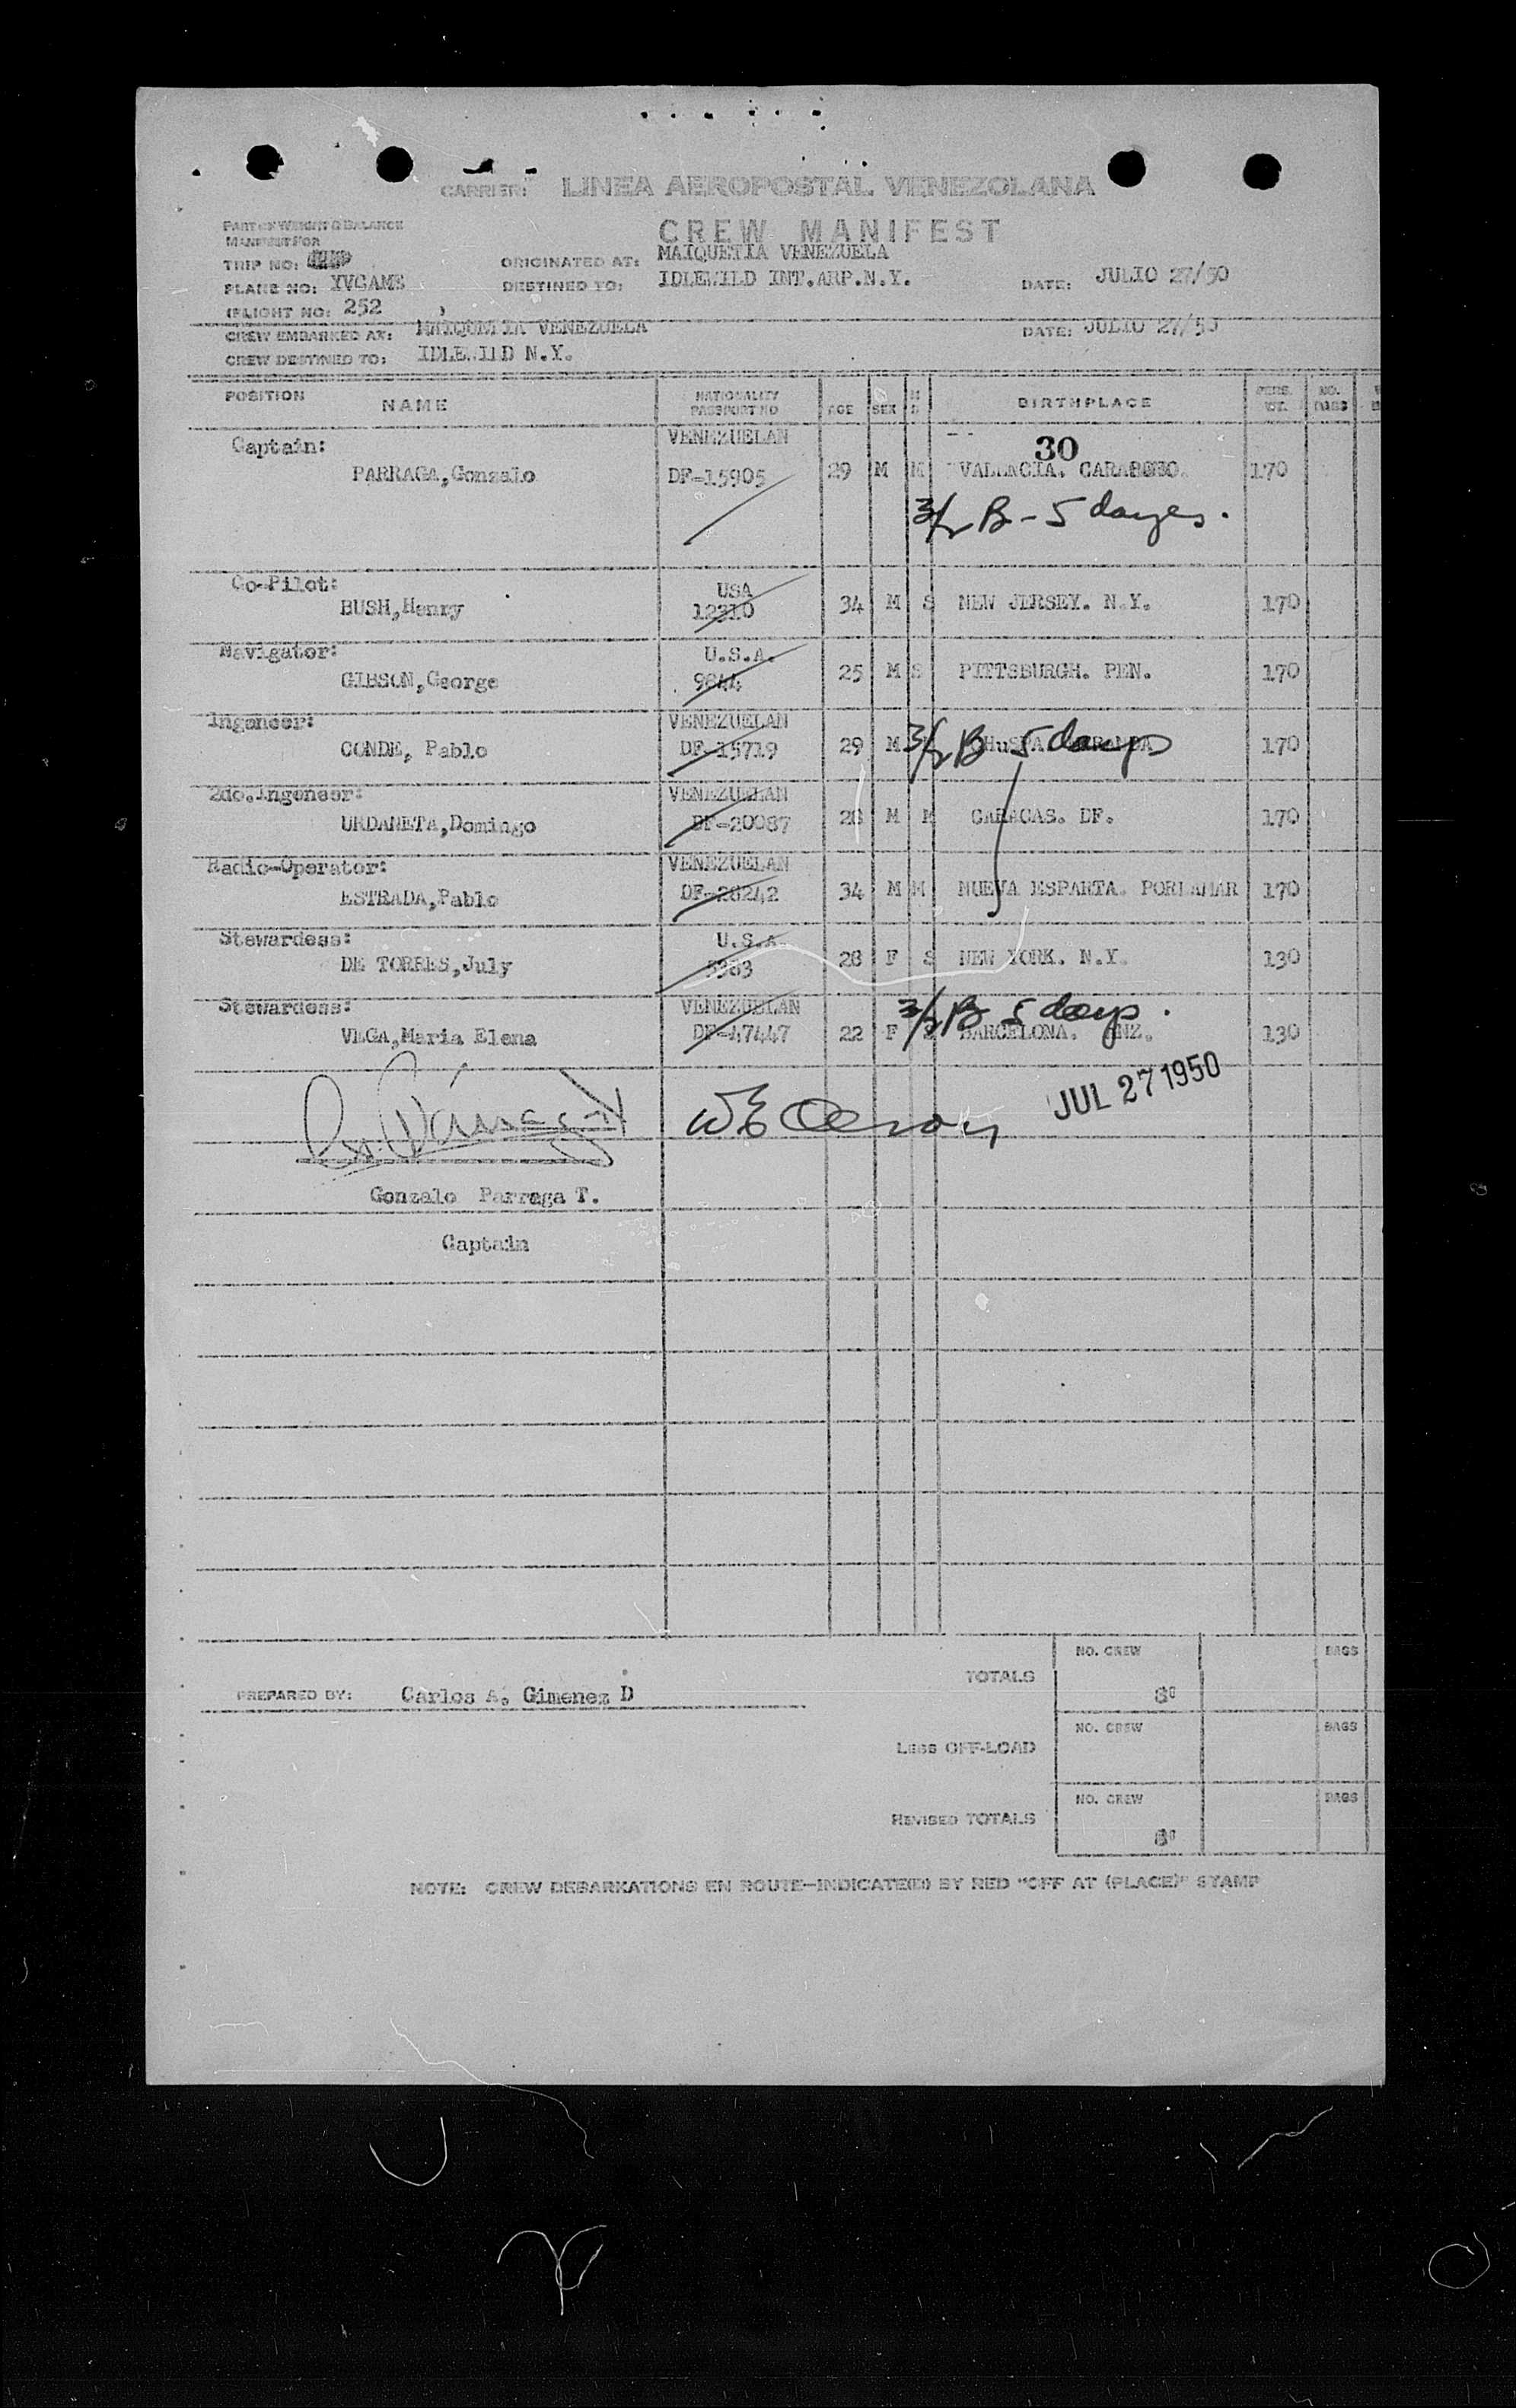 CARRIER: LINEA AEROPOSTAL VENEZOLANA
CREW MANIFEST
PART OF WEIGHT & BALANCE
MANIFEST FOR
TRIP NO:
ORIGINATED AT: MAIQUETIA VENEZUELA
PLANE NO: YVCAMS
DESTINED TO: IDLEWILD INT.ARP.N.Y.
DATE: JULIO 27/50
FLIGHT NO: 252
CREW EMBARKED AT: MAIQUETIA VENEZUELA
DATE: JULIO 27/50
CREW DESTINED TO: IDLEWILD N.Y.
POSITION NAME NATIONALITY PASSPORT NO AGE SEX BIRTHPLACE PERS. WT. NO. BAGS
Captain: VENEZUELAN 30
PARRAGA,Gonzalo DF-15905 29 M M VALENCIA. CARABOBO. 170
3/2 B - 5 days.
Co-Pilot: USA
BUSH,Henry 12310 34 M S NEW JERSEY. N.Y. 170
Navigator: U.S.A.
GIBSON,George 9844 25 M S PITTSBURGH. PEN. 170
Ingeneer: VENEZUELAN
CONDE, Pablo DF-15719 29 M 3/2 B 5 days 170
2do.Ingeneer: VENEZUELAN
URDANETA,Domingo DF-20087 28 M M CARACAS. DF. 170
Radio-Operator: VENEZUELAN
ESTRADA,Pablo DF-28242 34 M M NUEVA ESPARTA. PORLAMAR 170
Stewardess: U.S.A.
DE TORRES,July 5383 28 F S NEW YORK. N.Y. 130
Stewardess: VENEZUELAN 3/2 B 5 days.
VEGA,Maria Elena DF-47447 22 F BARCELONA. ANZ. 130
JUL 27 1950
Gonzalo Parraga T.
Captain
NO. CREW BAGS
TOTALS
PREPARED BY: Carlos A. Gimenez D 8
NO. CREW BAGS
LESS OFF-LOAD
NO. CREW BAGS
REVISED TOTALS
8
NOTE: CREW DEBARKATIONS EN ROUTE—INDICATE(D) BY RED "OFF AT (PLACE)" STAMP